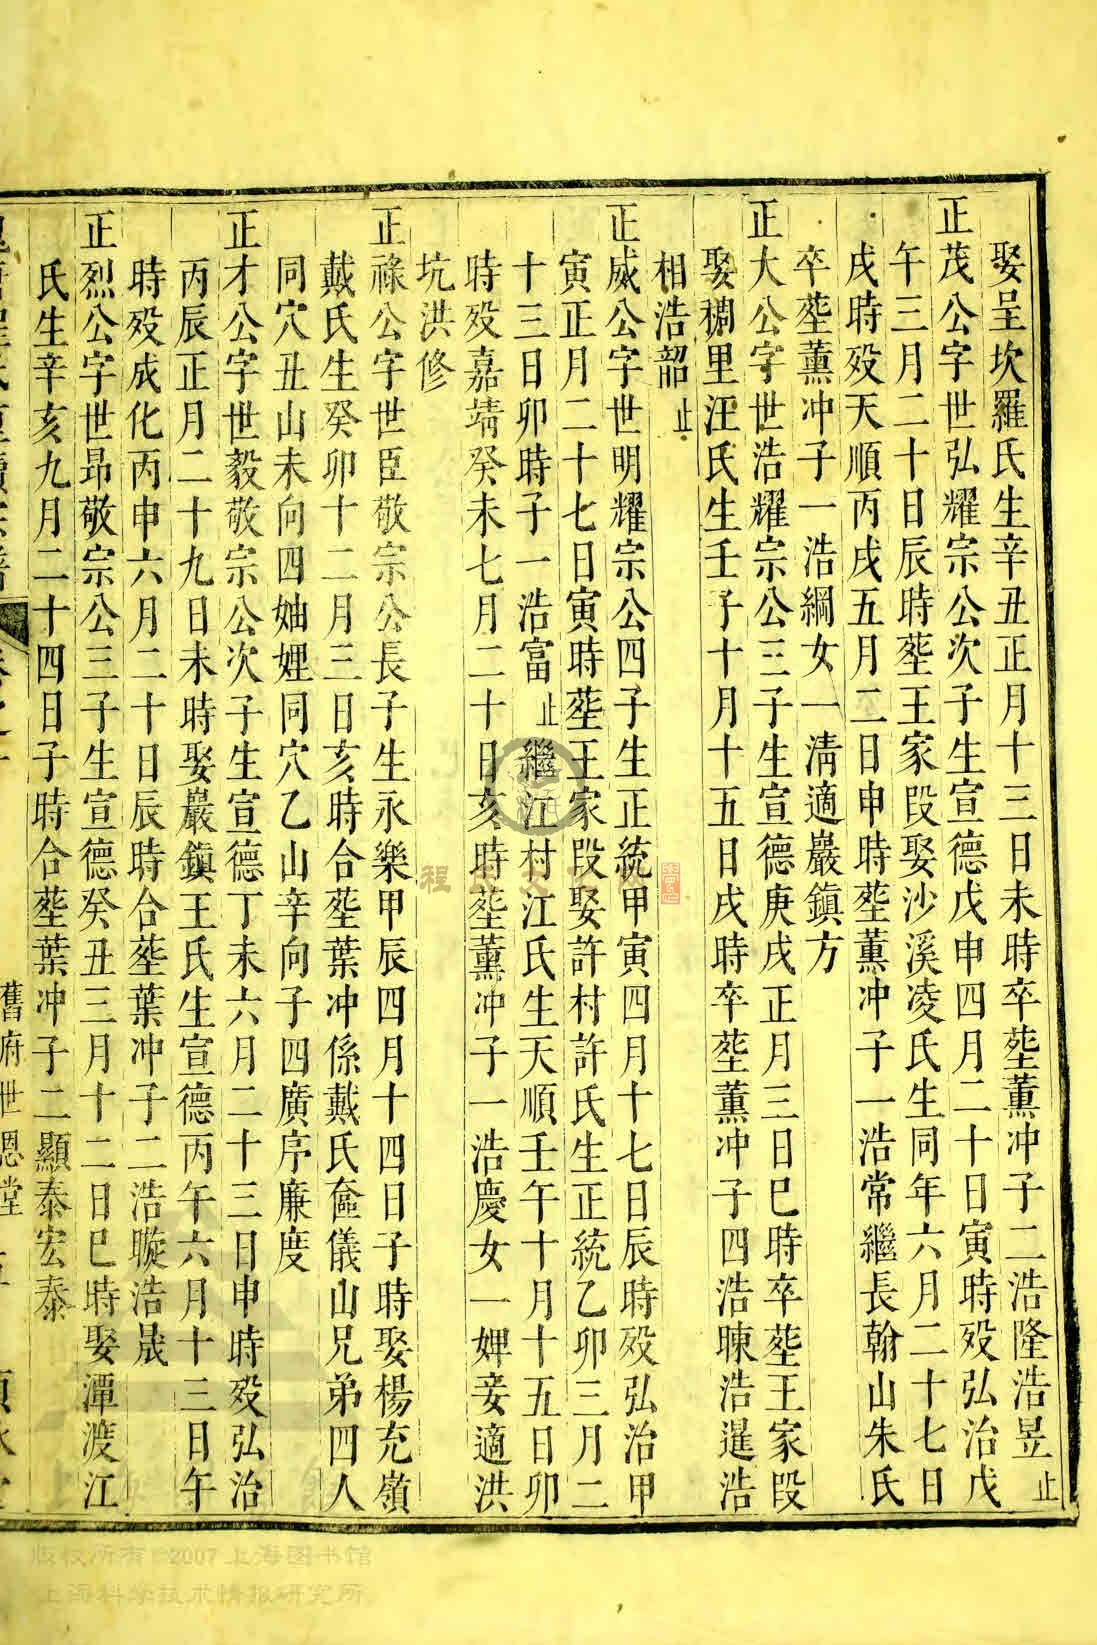 娶呈坎羅氏生辛丑正月十三日未時卒塟薰冲子二浩隆浩昱止
正茂公字世弘耀宗公次子生宣德戊申四月二十日寅時殁弘治戊
午三月二十日辰時塟王家段娶沙溪凌氏生同年六月二十七日
戌時殁天順丙戌五月二日申時塟薰冲子一浩常繼長翰山朱氏
卒塟薰冲子一浩綱女一清適巖鎮方
正大公字世浩耀宗公三子生宣德庚戌正月三日巳時卒塟王家段
娶稠里汪氏生壬子十月十五日戌時卒塟薰冲子四浩暕浩暹浩
相浩韶止
正威公字世明耀宗公四子生正統甲寅四月十七日辰時殁弘治甲
寅正月二十七日寅時塟王家段娶許村許氏生正統乙卯三月二
十三日卯時子一浩富止繼江村江氏生天順壬午十月十五日卯
時殁嘉靖癸未七月二十日亥時塟薰冲子一浩慶女一娌妾適洪
坑洪修
正祿公字世臣敬宗公長子生永樂甲辰四月十四日子時娶楊充嶺
戴氏生癸卯十二月三日亥時合塟葉冲係戴氏奩儀山兄弟四人
同穴丑山未向四妯娌同穴乙山辛向子四廣序廉度
正才公字世毅敬宗公次子生宣德丁未六月二十三日申時殁弘治
丙辰正月二十九日未時娶巖鎮王氏生宣德丙午六月十三日午
時殁成化丙申六月二十日辰時合塟葉冲子二浩璇浩晟
正烈公字世昂敬宗公三子生宣德癸丑三月十二日巳時娶潭渡江
氏生辛亥九月二十四日子時合塟葉冲子二顯泰宏泰
舊府世恩堂
版权所有©2007上海图书馆
上海科学技术情报研究所